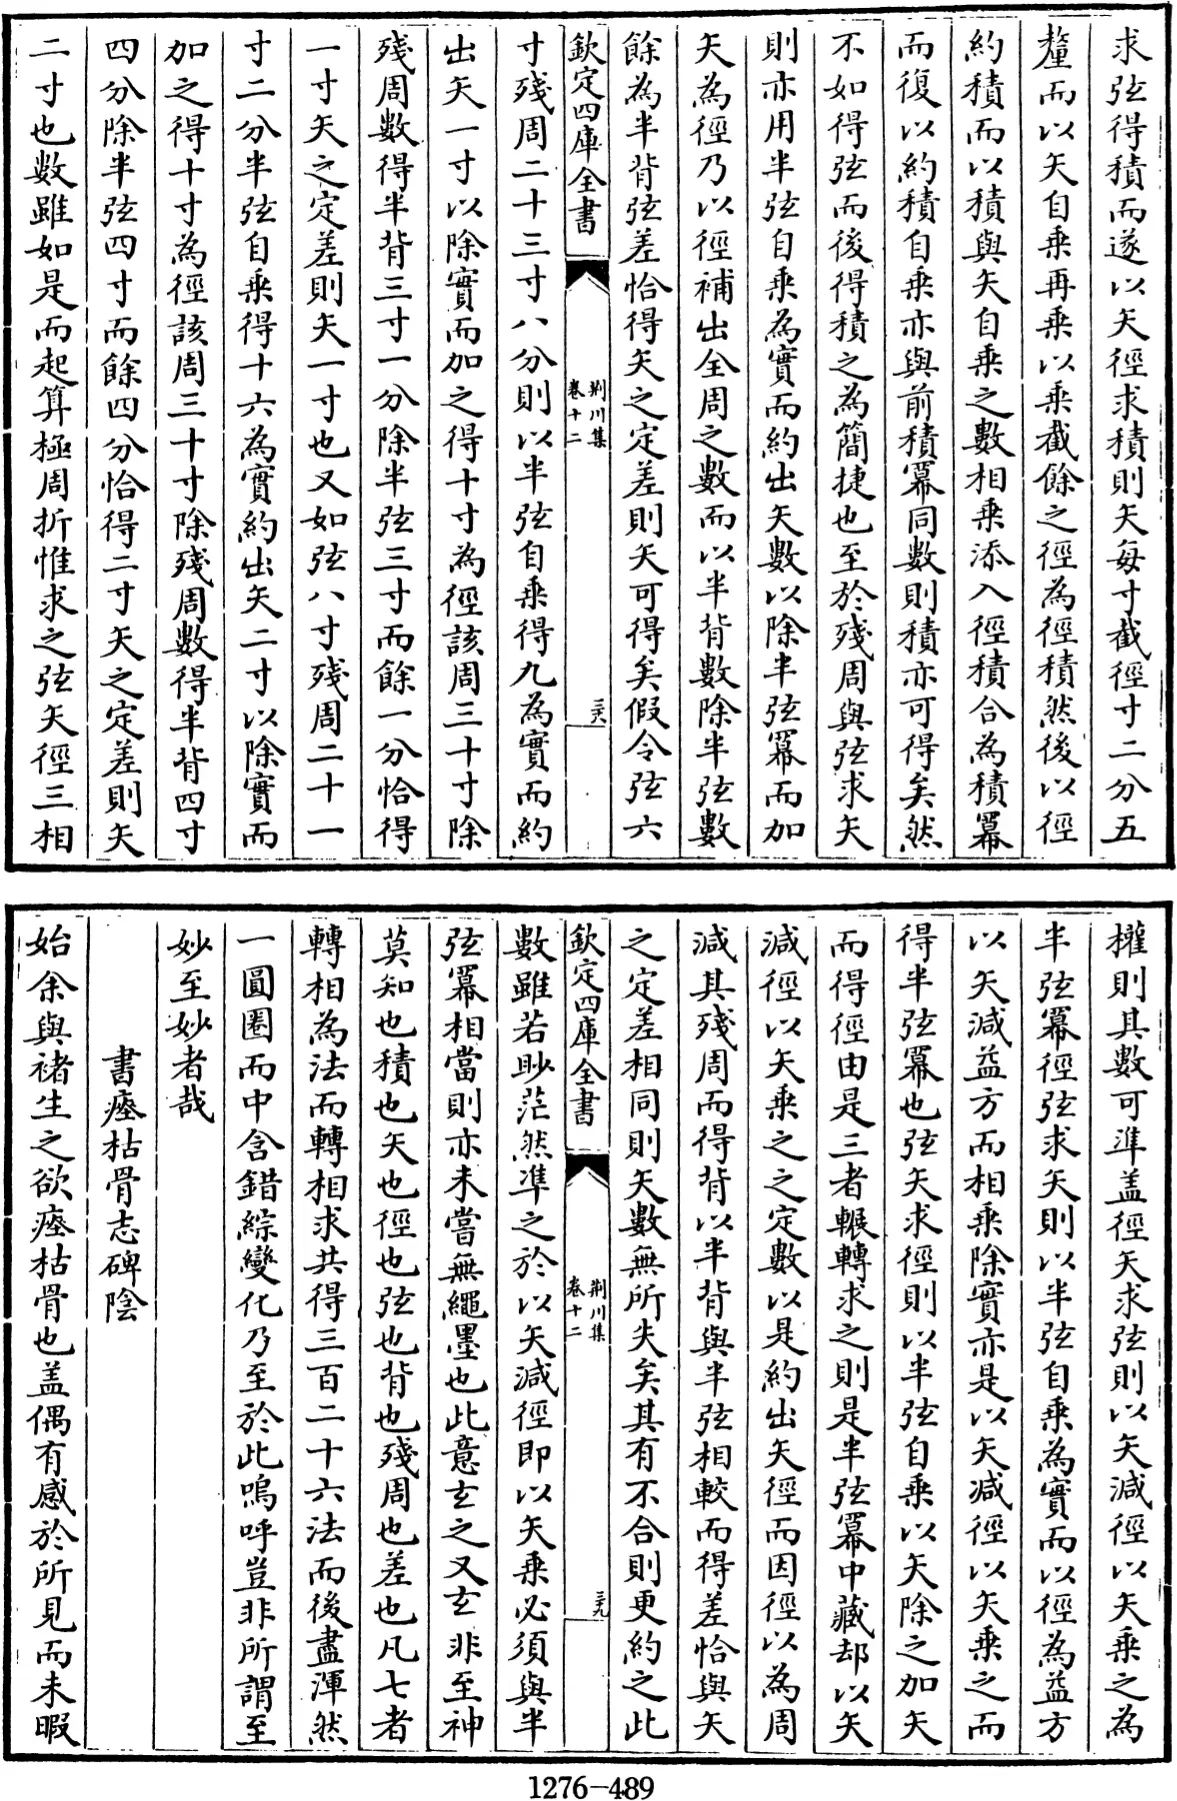 求弦得積而遂以矢徑求積則矢每寸截徑寸二分五
釐而以矢自乘再乘以乘截餘之徑為徑積然後以徑
約積而以積與矢自乘之數相乘添入徑積合為積冪
而復以約積自乘亦與前積冪同數則積亦可得矣然
不如得弦而後得積之為簡捷也至於殘周與弦求矢
則亦用半弦自乘為實而約出矢數以除半弦冪而加
矢為徑乃以徑補出全周之數而以半背數除半弦數
餘為半背弦差恰得矢之定差則矢可得矣假令弦六
欽定四庫全書
荆川集
卷十二
三八
寸殘周二十三寸八分則以半弦自乘得九為實而約
出矢一寸以除實而加之得十寸為徑該周三十寸除
殘周數得半背三寸一分除半弦三寸而餘一分恰得
一寸矢之定差則矢一寸也又如弦八寸殘周二十一
寸二分半弦自乘得十六為實約出矢二寸以除實而
加之得十寸為徑該周三十寸除殘周數得半背四寸
四分除半弦四寸而餘四分恰得二寸矢之定差則矢
二寸也數雖如是而起算極周折惟求之弦矢徑三相
權則其數可準盖徑矢求弦則以矢減徑以矢乘之為
半弦冪徑弦求矢則以半弦自乘為實而以徑為益方
以矢減益方而相乘除實亦是以矢減徑以矢乘之而
得半弦冪也弦矢求徑則以半弦自乘以矢除之加矢
而得徑由是三者輾轉求之則是半弦冪中藏却以矢
減徑以矢乘之之定數以是約出矢徑而因徑以為周
減其殘周而得背以半背與半弦相較而得差恰與矢
之定差相同則矢數無所失矣其有不合則更約之此
欽定四庫全書
荆川集
卷十二
三九
數雖若眇茫然準之於以矢減徑即以矢乘必須與半
弦冪相當則亦未嘗無繩墨也此意玄之又玄非至神
莫知也積也矢也徑也弦也背也殘周也差也凡七者
轉相為法而轉相求共得三百二十六法而後盡渾然
一圓圈而中含錯綜變化乃至於此嗚呼豈非所謂至
妙至妙者哉
書瘞枯骨志碑陰
始余與褚生之欲瘞枯骨也盖偶有感於所見而未暇
1276-489